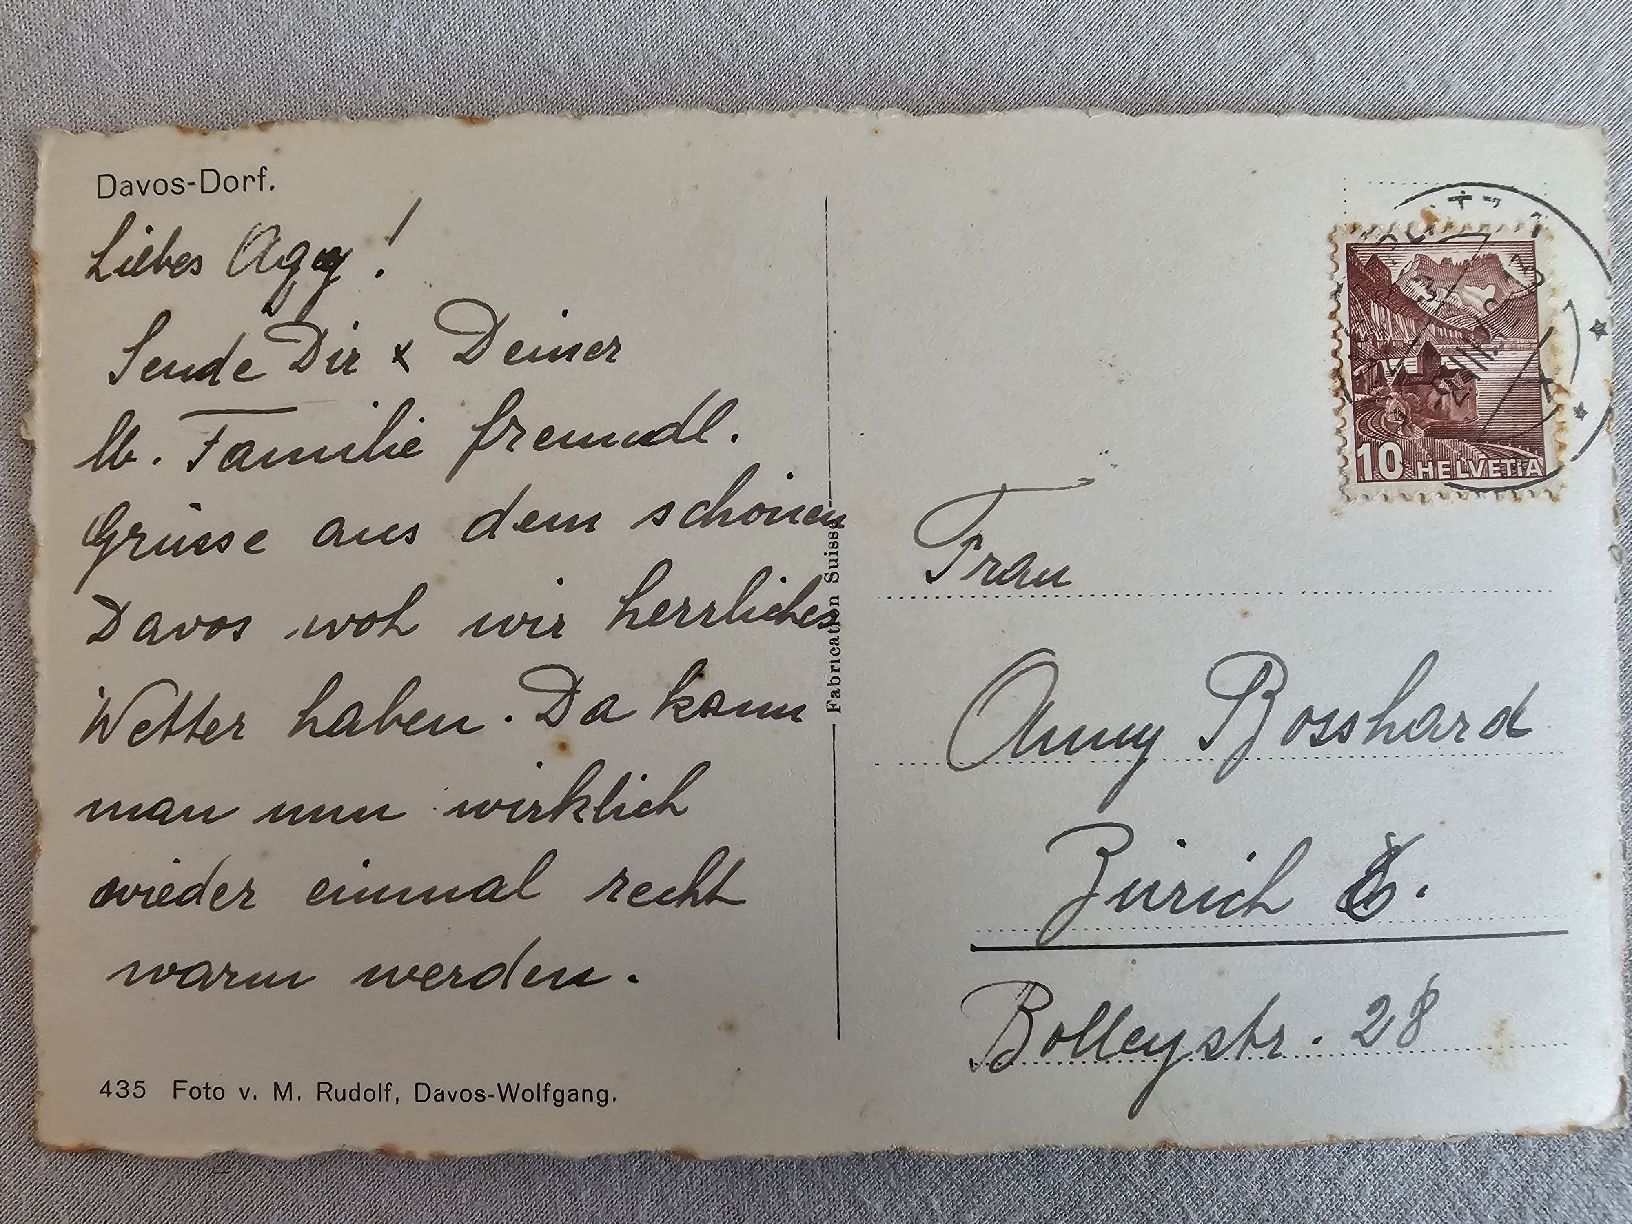 Davos-Dorf.
Liebes Aggy!
Sende Dir x Deiner
lb. Familie freundl.
Grüsse aus dem schönen
Davos woh wir herrliches
Wetter haben. Da kann
man nun wirklich
wieder einmal recht
warm werden.
435 Foto v. M. Rudolf, Davos-Wolfgang.
Fabrication Suisse
10 HELVETIA
Frau
Anny Bosshard
Zürich 6.
Bolleystr. 28